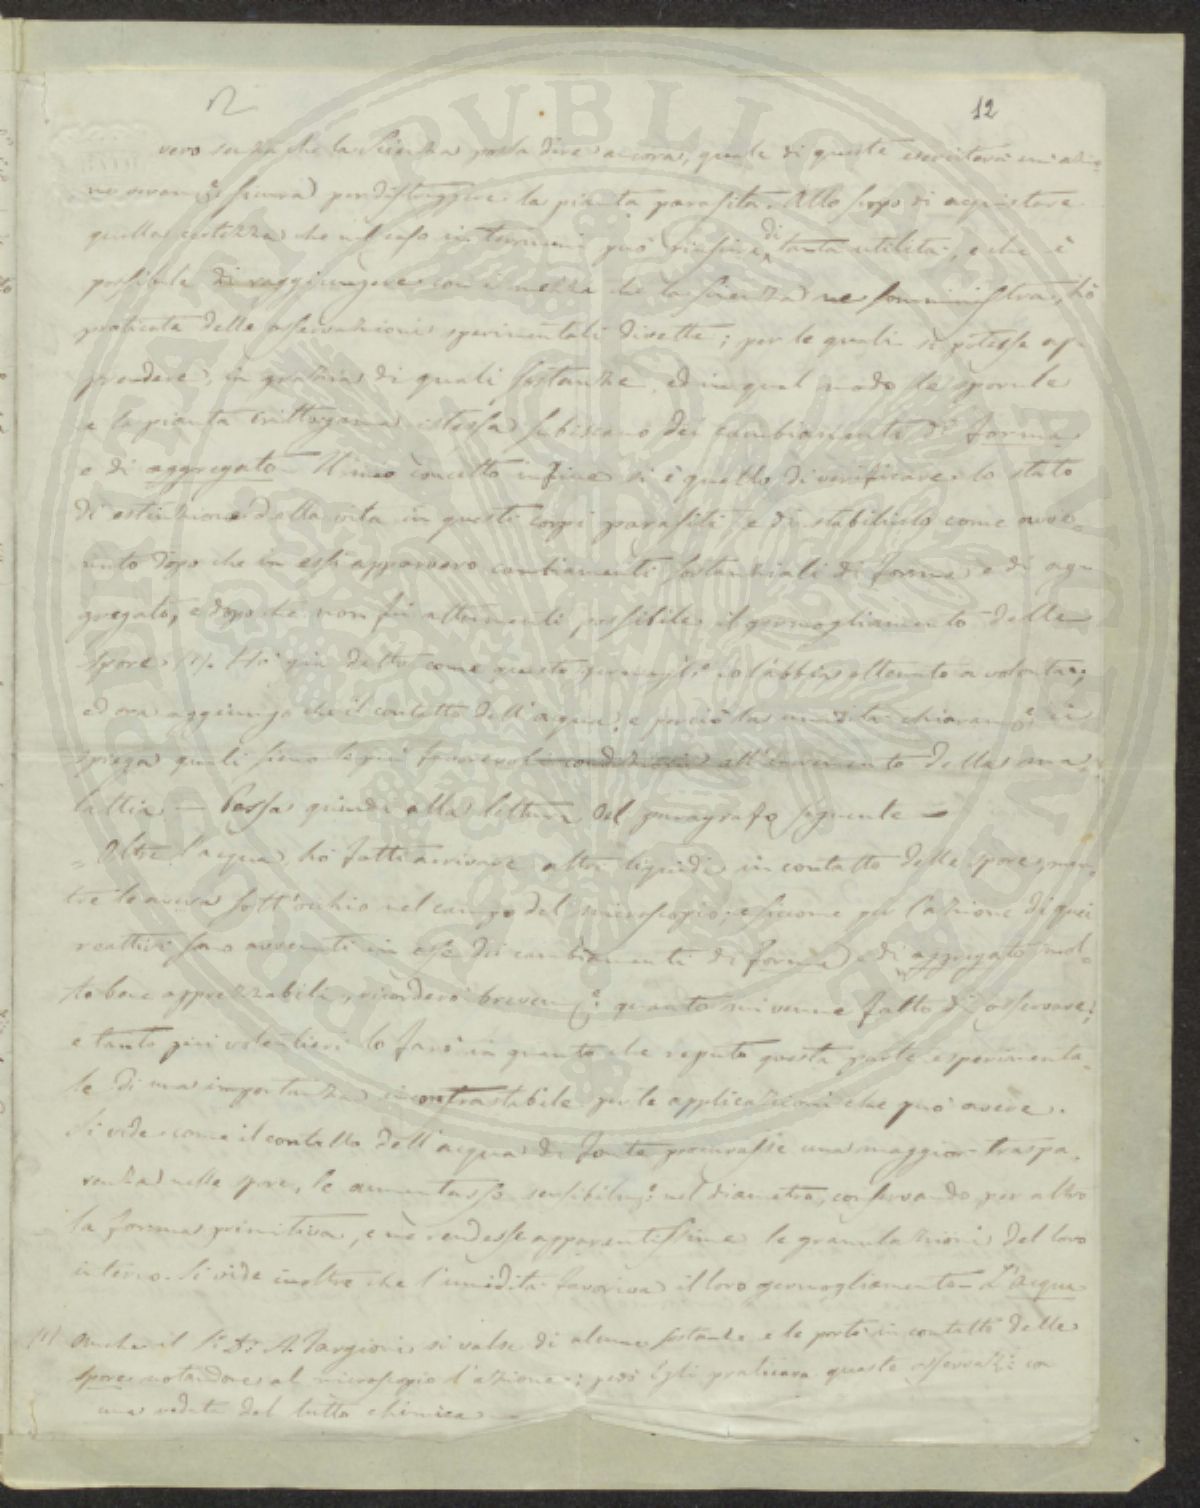 12
vero senza che la Scienza possa dire ancora, quale di queste eserciterà un'azio-
ne sicura per distruggere la pianta parasita. Allo scopo di acquistare
quella certezza che nel caso in termini può riuscire di tanta utilità, e che è
possibile di raggiungere con i mezzi che la scienza ne somministra, hò
praticate delle osservazioni sperimentali dirette; per le quali si potesse ap-
prendere, in grazia di quali sostanze, ed in qual modo le sporule
e la pianta crittogama istessa subiscano dei cambiamenti di forma
e di aggregato. Ultimo concetto infine si è quello di verificare lo stato
di estinzione della vita in questi corpi parasiti, e di stabilirlo come avve-
nuto dopo che in essi apparvero cambiamenti sostanziali di forma e di ag-
gregato, e dopo che non fù altrimenti possibile il germogliamento delle
spore (1). Hò già detto come questo io l'abbia ottenuto a volontà;
ed ora aggiungo che il contatto dell'acqua, e perciò la umidità ci
spiega quali sieno le più favorevoli condizioni all'incremento della ma-
lattia — Passa quindi alla lettura del paragrafo seguente —
"Oltre l'acqua hò fatti arrivare altri liquidi in contatto delle spore, men-
tre le aveva sott'occhio nel campo del microscopio, e siccome per l'azione di quei
reattivi sono avvenuti in esse dei cambiamenti di forma e di aggregato mol-
to bene apprezzabili, ricorderò quanto mi venne fatto di osservare;
e tanto più volentieri lo farò in quanto che reputo questa parte esperimenta-
le di una importanza incontrastabile per le applicazioni che può avere.
Si vide come il contatto dell'acqua di fonte procurasse una maggior traspa-
renza nelle spore, le aumentasse nel diametro, conservando per altro
la forma primitiva, e ne rendesse apparentissime le granulazioni del loro
interno. Si vide inoltre che l'umidità favoriva il loro germogliamento — L'acqua
(1) Anche il A. Targioni si valse di alcune sostanze e le portò in contatto delle
spore notandone al microscopio l'azione; però Egli praticava queste con
una veduta del tutto chimica —